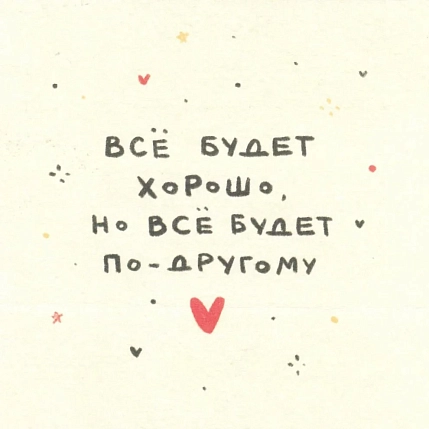 ВСЁ БУДЕТ
ХОРОШО,
НО ВСЁ БУДЕТ
ПО-ДРУГОМУ